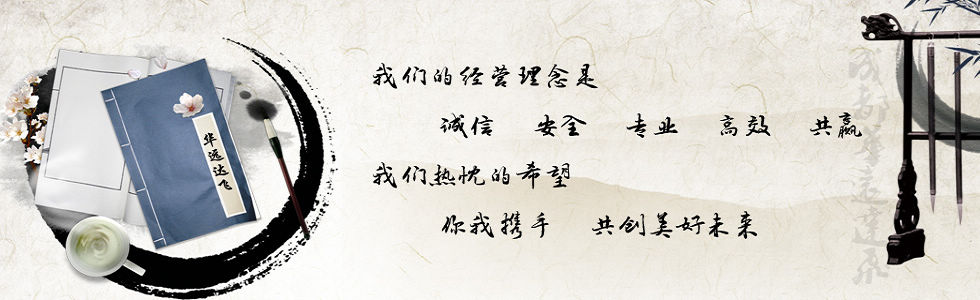 我们的经营理念是
诚信 安全 专业 高效 共赢
我们热忱的希望
你我携手 共创美好未来
华远达飞
成都华远达飞